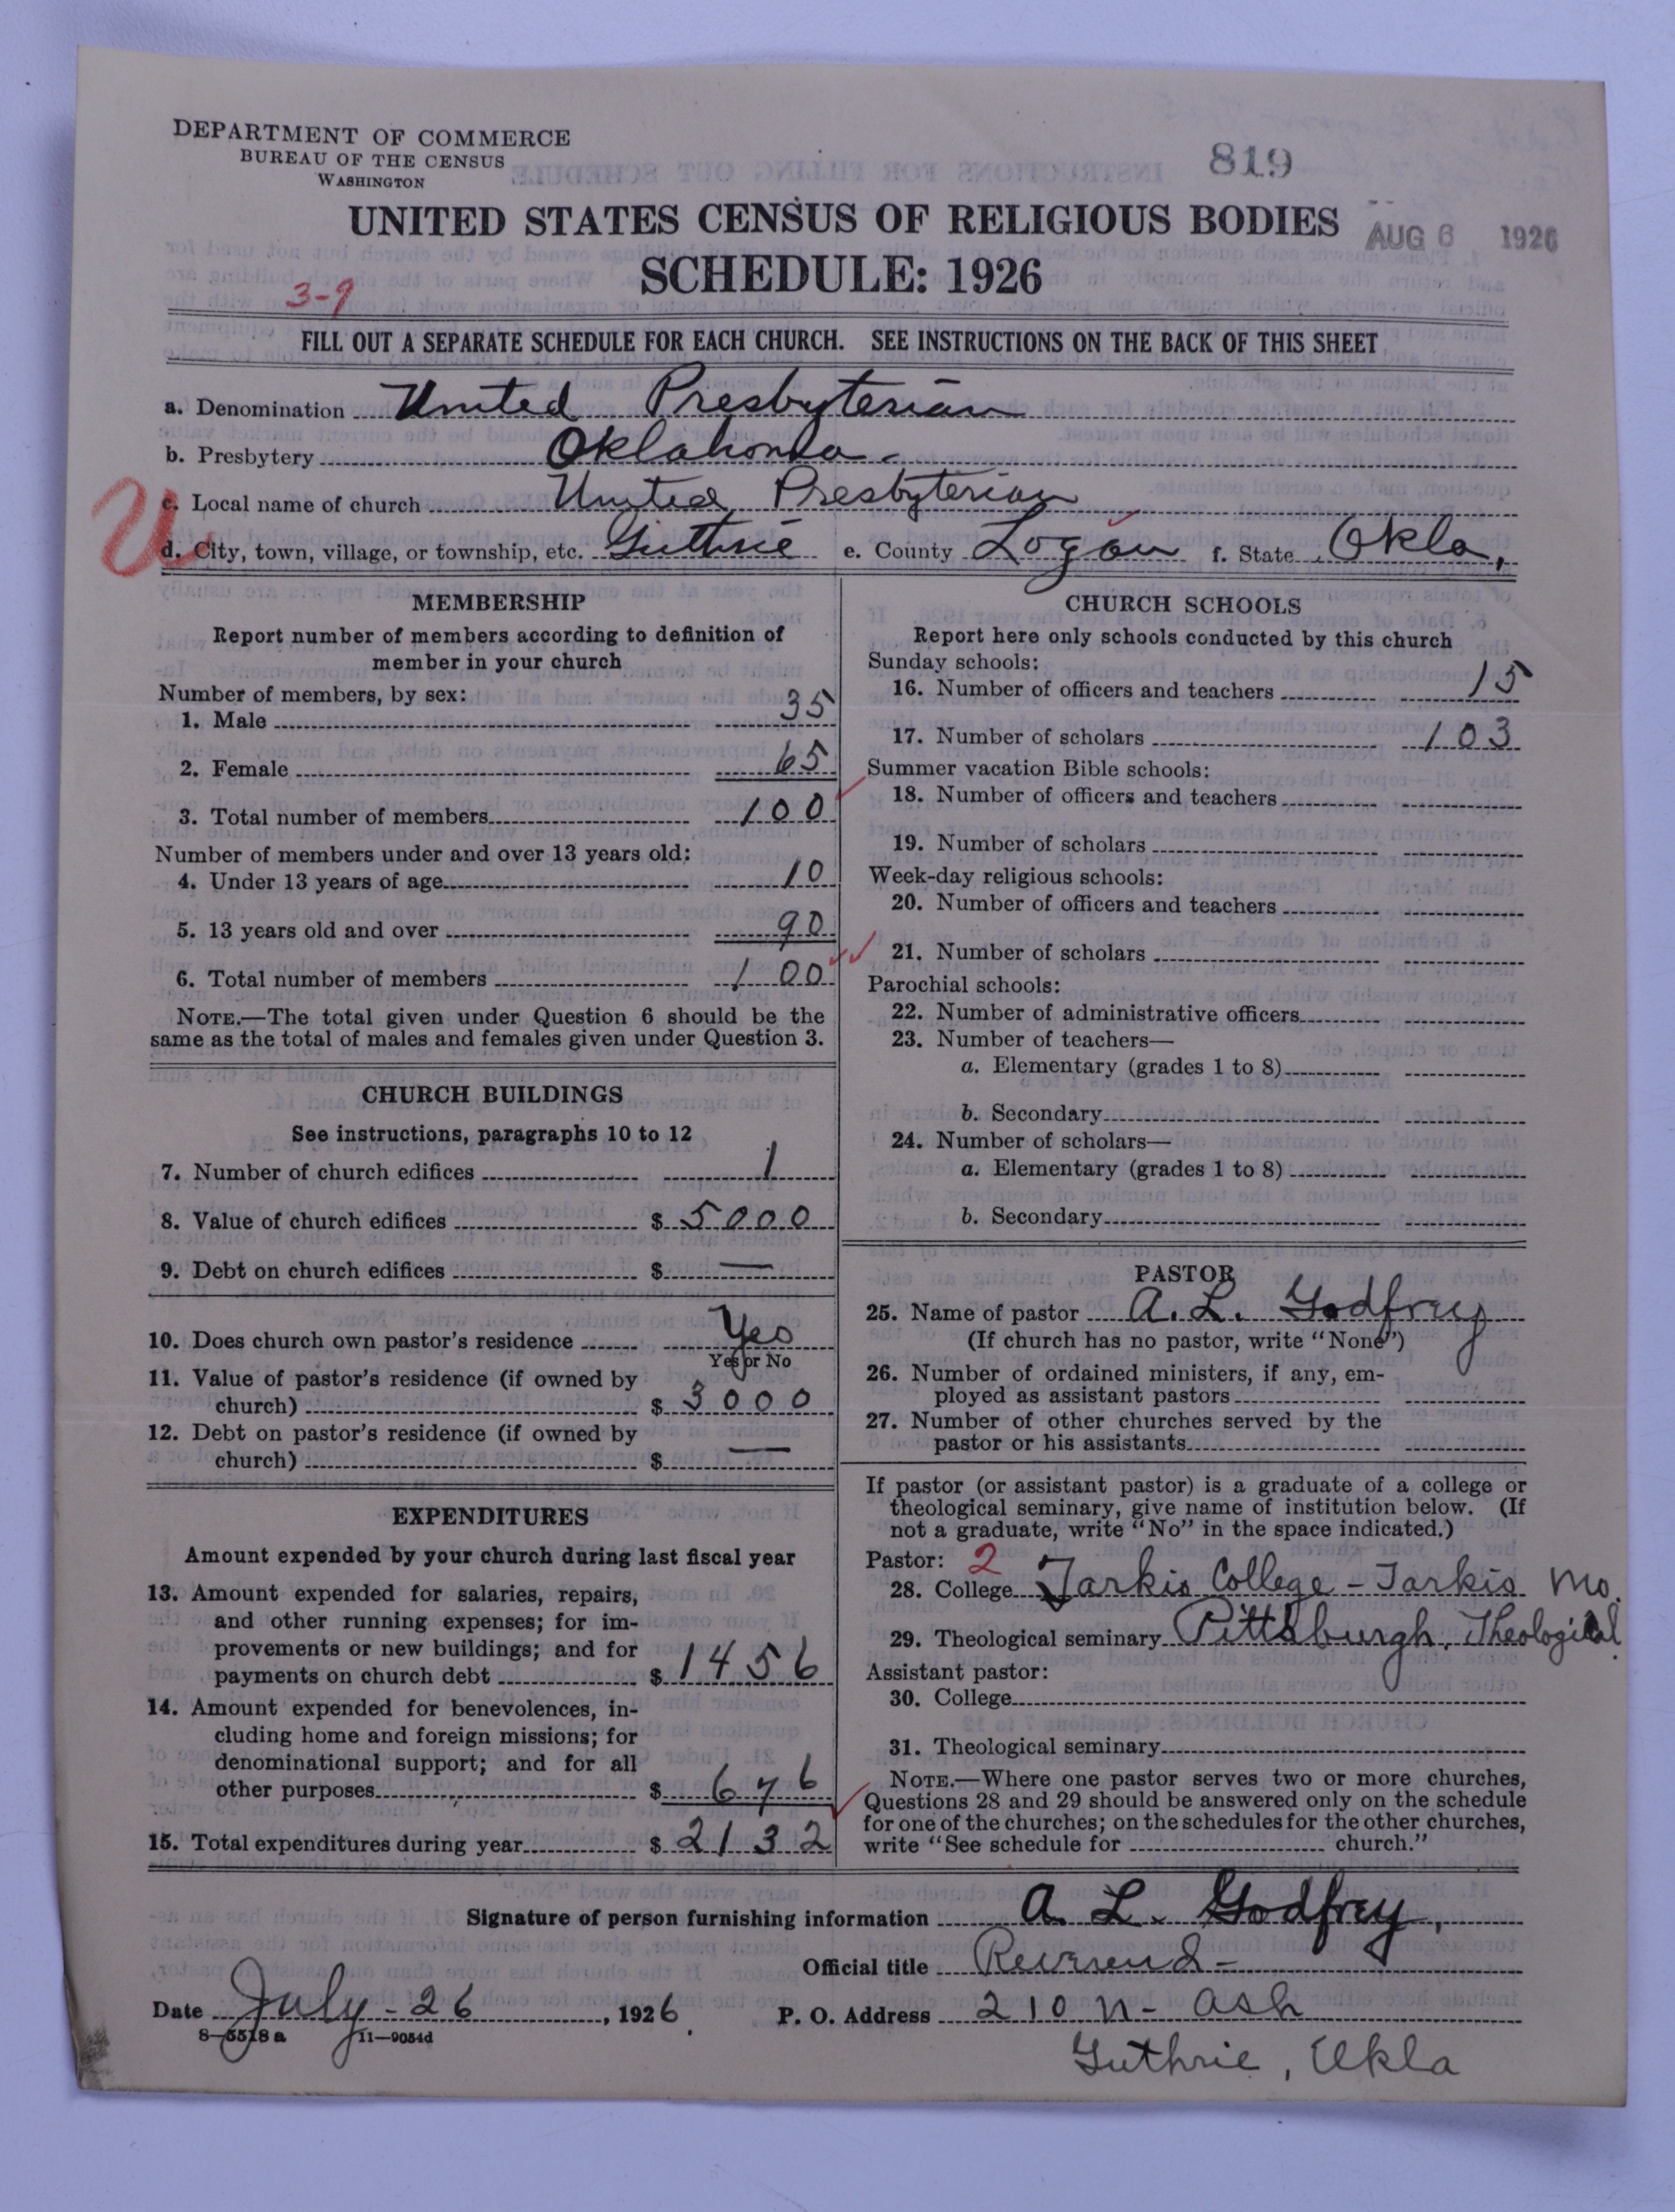 DEPARTMENT OF COMMERCE
BUREAU OF THE CENSUS
WASHINGTON
819
UNITED STATES CENSUS OF RELIGIOUS BODIES
AUG 6 1926
SCHEDULE: 1926
3-9
FILL OUT A SEPARATE SCHEDULE FOR EACH CHURCH. SEE INSTRUCTIONS ON THE BACK OF THIS SHEET
a. Denomination United Presbyterian
b. Presbytery Oklahoma.
U
c. Local name of church United Presbyterian
d. City, town, village, or township, etc. Guthrie e. County Logan f. State Okla,
MEMBERSHIP
Report number of members according to definition of
member in your church
Number of members, by sex:
1. Male 35
2. Female 65
3. Total number of members 100
Number of members under and over 13 years old:
4. Under 13 years of age 10
5. 13 years old and over 90
6. Total number of members 100
NOTE.—The total given under Question 6 should be the
same as the total of males and females given under Question 3.
CHURCH BUILDINGS
See instructions, paragraphs 10 to 12
7. Number of church edifices 1
8. Value of church edifices $ 5000
9. Debt on church edifices $ —
10. Does church own pastor's residence Yes
Yes or No
11. Value of pastor's residence (if owned by
church) $ 3000
12. Debt on pastor's residence (if owned by
church) $ —
EXPENDITURES
Amount expended by your church during last fiscal year
13. Amount expended for salaries, repairs,
and other running expenses; for im-
provements or new buildings; and for
payments on church debt $ 1456
14. Amount expended for benevolences, in-
cluding home and foreign missions; for
denominational support; and for all
other purposes $ 676
15. Total expenditures during year $ 2132
CHURCH SCHOOLS
Report here only schools conducted by this church
Sunday schools:
16. Number of officers and teachers 15
17. Number of scholars 103
Summer vacation Bible schools:
18. Number of officers and teachers
19. Number of scholars
Week-day religious schools:
20. Number of officers and teachers
21. Number of scholars
Parochial schools:
22. Number of administrative officers
23. Number of teachers—
a. Elementary (grades 1 to 8)
b. Secondary
24. Number of scholars—
a. Elementary (grades 1 to 8)
b. Secondary
PASTOR
25. Name of pastor A. L. Godfrey
(If church has no pastor, write "None")
26. Number of ordained ministers, if any, em-
ployed as assistant pastors
27. Number of other churches served by the
pastor or his assistants
If pastor (or assistant pastor) is a graduate of a college or
theological seminary, give name of institution below. (If
not a graduate, write "No" in the space indicated.)
Pastor: 2
28. College Tarkio College - Tarkio Mo.
29. Theological seminary Pittsburgh, Theological
Assistant pastor:
30. College
31. Theological seminary
NOTE.—Where one pastor serves two or more churches,
Questions 28 and 29 should be answered only on the schedule
for one of the churches; on the schedules for the other churches,
write "See schedule for church."
Signature of person furnishing information A. L. Godfrey,
Official title Reverend -
Date July - 26, 1926. P. O. Address 210 N - Ash
8-5518 a 11-9054d
Guthrie, Okla